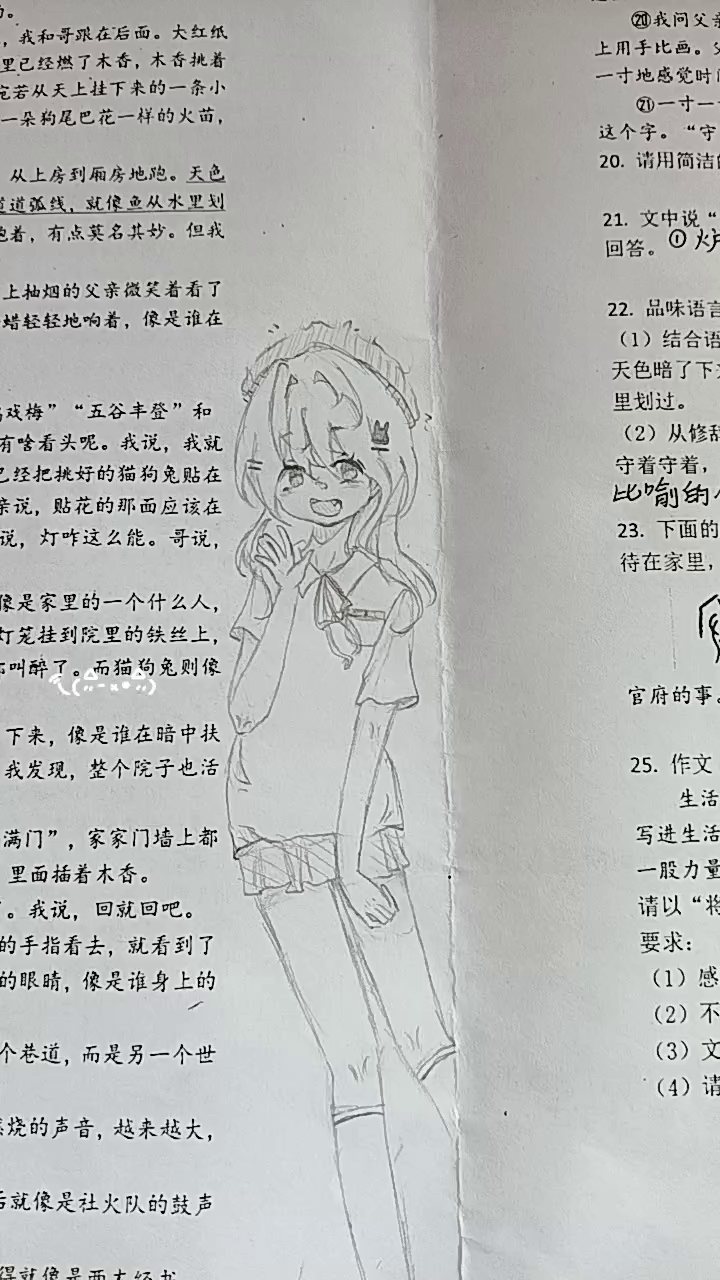 ，我和哥跟在后面。大红纸
里已经燃了木香，木香挑着
宛若从天上挂下来的一条小
一朵狗尾巴花一样的火苗，
从上房到厢房地跑。天色
道道弧线，就像鱼从水里划
跑着，有点莫名其妙。但我
上抽烟的父亲微笑着看了
蜡轻轻地响着，像是谁在
戏梅”“五谷丰登”和
有啥看头呢。我说，我就
已经把挑好的猫狗兔贴在
亲说，贴花的那面应该在
说，灯咋这么能。哥说，
像是家里的一个什么人，
灯笼挂到院里的铁丝上，
叫醉了。而猫狗兔则像
下来，像是谁在暗中扶
我发现，整个院子也活
满门”，家家门墙上都
里面插着木香。
。我说，回就回吧。
的手指看去，就看到了
的眼睛，像是谁身上的
个巷道，而是另一个世
燃烧的声音，越来越大，
后就像是社火队的鼓声
得就像是
⑳我问父亲
上用手比画。父
一寸地感觉时间
㉑一寸一
这个字。“守
20. 请用简洁的
21. 文中说“
回答。① 炉
22. 品味语言
（1）结合语
天色暗了下来
里划过。
（2）从修辞
守着守着，
比喻的
23. 下面的
待在家里，
官府的事。
25. 作文
生活
写进生活
一股力量
请以“将
要求：
（1）感
（2）不
（3）文
（4）请